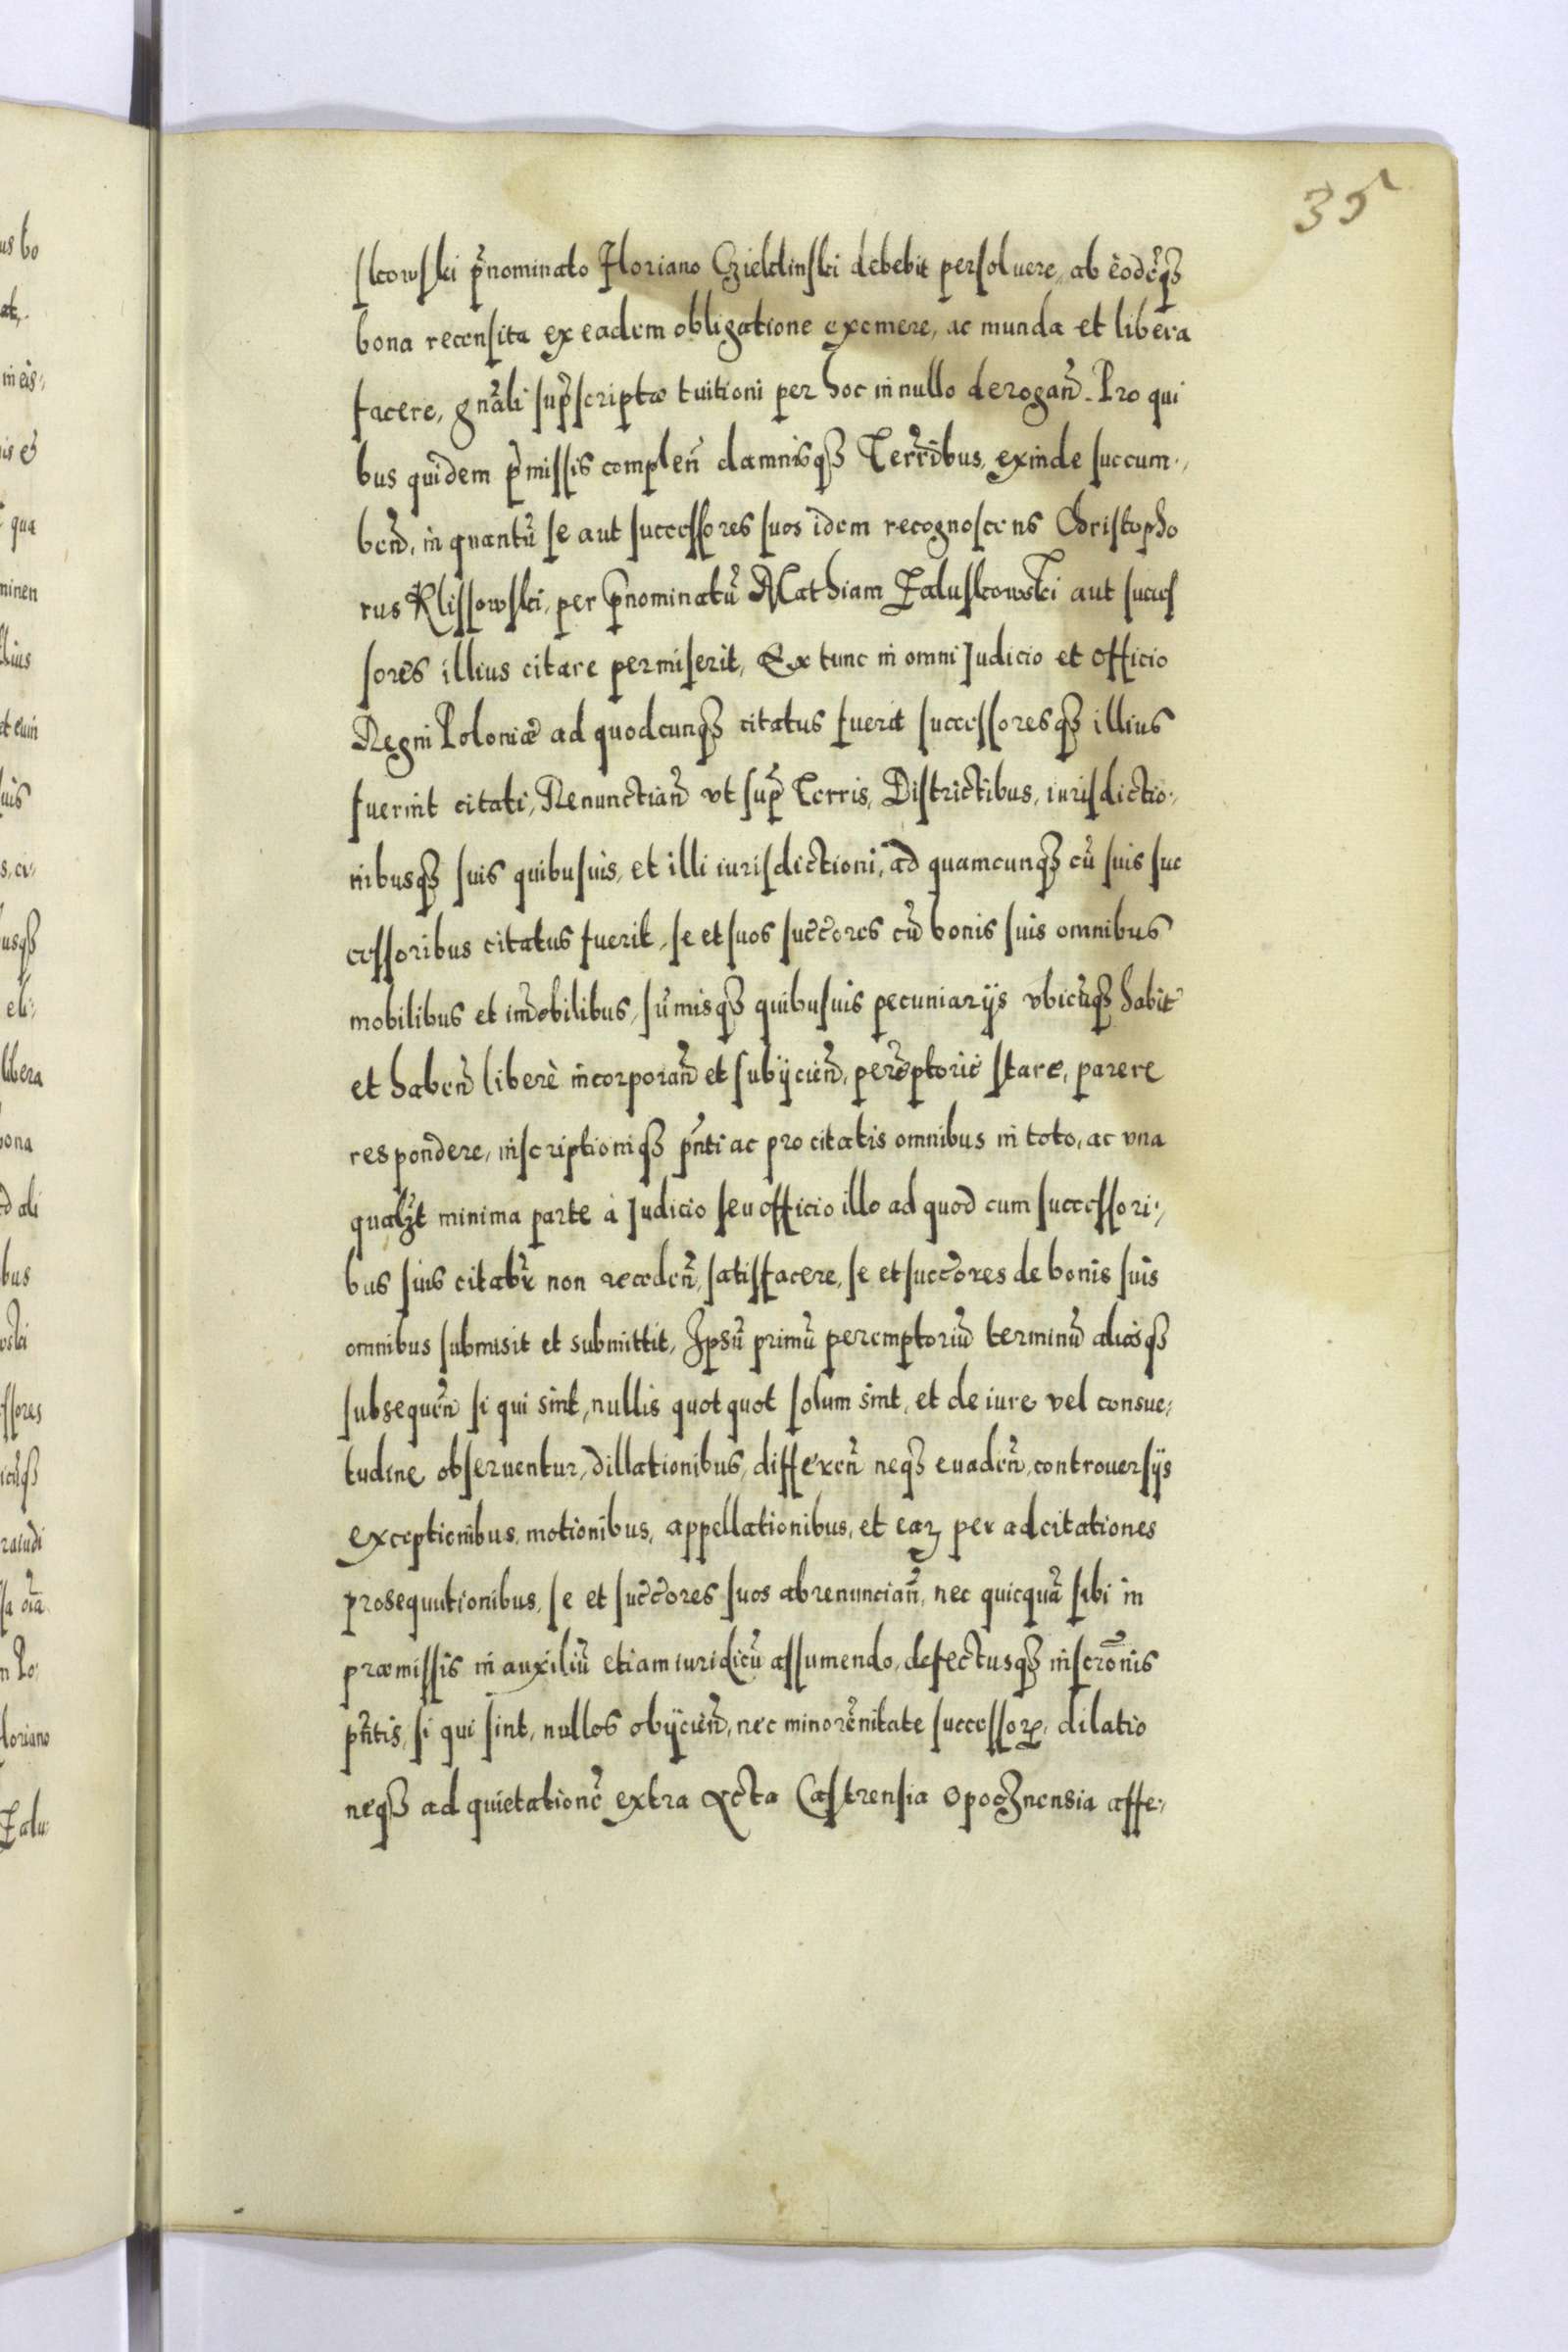 35
skowski p̃nominato Floriano Czieklinski debebit persoluere, ab eodẽq₃
bona recensita ex eadem obligatione eximere, ac munda et libera
facere, gnãli sup̃scriptæ tuitioni per hoc in nullo derogañ. Pro qui
bus quidem p̃missis compleñ damnisq₃ Terr̃ibus, exinde succum-,
beñ, in quantũ se aut successores suos idem recognoscens Christopho
rus Klissowski, per p̃nominatũ Mathiam Zaluskowski aut succes
sores illius citare permiserit, Ex tunc in omni Judicio et officio
Regni Poloniæ ad quodcunq₃ citatus fuerit successoresq₃ illius
fuerint citati, Renunctiañ vt sup̃ Terris, Districtibus, iurisdictio-,
nibusq₃ suis quibusuis, et illi iurisdictioni, ad quamcunq₃ cũ suis suc
cessoribus citatus fuerit, se et suos succ̃ores cũ bonis suis omnibus
mobilibus et im̃obilibus, sum̃isq₃ quibusuis pecuniarijs vbicũq₃ habit̃
et habeñ liberè incorporañ et subijcieñ, perẽptoriè stare, parere
respondere, inscriptioniq₃ pñti ac pro citatis omnibus in toto, ac vna
qualz̃t minima parte à Judicio seu officio illo ad quod cum successori-,
bus suis citabr̃ non recedeñ, satisfacere, se et succ̃ores de bonis suis
omnibus submisit et submittit, Ipsũ primũ peremptoriũ terminũ aliosq₃
subsequeñ si qui sint, nullis quotquot solum sint, et de iure vel consue-,
tudine obseruentur, dillationibus, differeñ neq₃ euadeñ, controuersijs
exceptionibus, motionibus, appellationibus, et eaꝝ per adcitationes
prosequutionibus, se et succ̃ores suos abrenunciañ, nec quicquã sibi in
præmissis in auxiliũ etiam iuridicũ assumendo, defectusq₃ inscrõnis
pñtis, si qui sint, nullos obijcieñ, nec minorẽnitate successoꝝ, dilatio
neq₃ ad quietationẽ extra Acta Castrensia Opocznensia affe-,